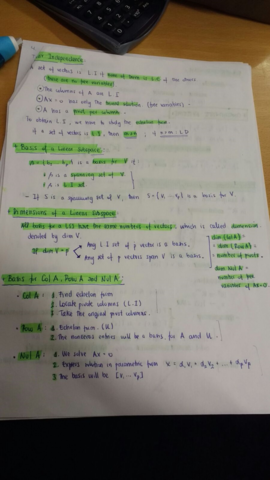 Independence
A set of vectors is L.I if none of them is L.C of the others
• The columns of A are L.I
• Ax = 0 has only the trivial solution (free variables)
• A has a pivot per column
To obtain L.I, we have to study the echelon form
if a set of vectors is L.I, then
• Basis of a Linear Subspace
is a basis for V if
is a spanning set of V
is L.I set
- If S is a spanning set of V, then is a basis for V.
• Dimensions of a Linear Subspace
All bases for have the same number of vectors, which is called dimension
denoted by dim V.
If dim V = p
Any L.I set of p vector is a basis.
Any set of p vectors span V is a basis.
dim (Col A) =
dim (Row A) =
number of pivots.
dim Nul A =
number of free
variables of Ax=0.
• Basis for Col A, Row A and Nul A:
• Col A 1. Find echelon form
2. Locate pivots columns (L.I)
3. Take the original pivot columns.
• Row A 1. Echelon form. (U)
2. The nonzero entries will be a basis for A and U.
• Nul A 1. We solve Ax = 0
2. Express solution in parametric form
3. The basis will be {V₁ ... Vp}